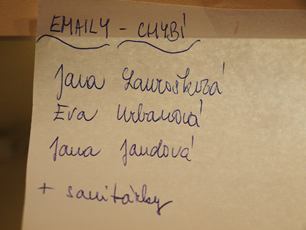 EMAILY - CHYBÍ
Jana Laurošková
Eva Urbanová
Jana Jandová
+ sanitářky